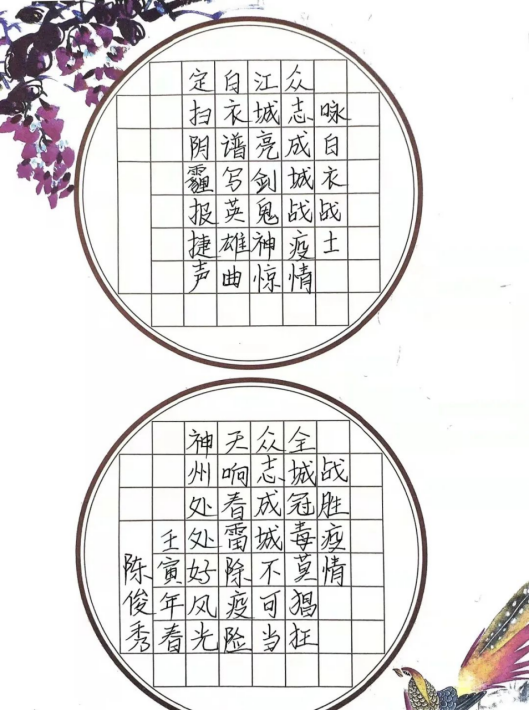 咏白衣战士
众志成城战疫情
江城亮剑鬼神惊
白衣谱写英雄曲
定扫阴霾报捷声
战胜疫情
全城冠毒莫猖狂
众志成城不可当
天响春雷除疫险
神州处处好风光
壬寅年春
陈俊秀